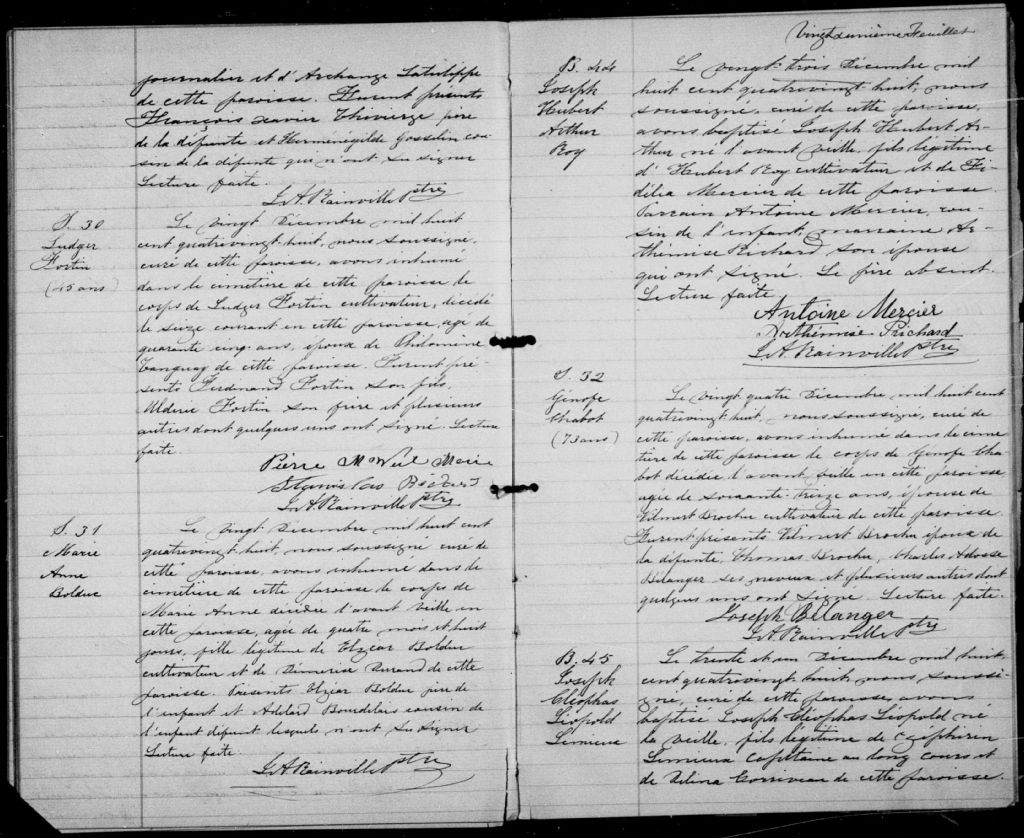 journalier et d'Archange Latulippe
de cette paroisse. Furent présents
François xavier Thivierge père
de la défunte et Herménégilde Gosselin cou-
sin de la défunte qui n'ont su signer
Lecture faite.
L.A. Rainville Ptre
S. 30
Ludger
Fortin
(45 ans)
Le vingt Décembre mil huit
cent quatrevingt huit, nous soussigné,
curé de cette paroisse, avons inhumé
dans le cimetière de cette paroisse le
corps de Ludger Fortin cultivateur, décédé
le seize courant en cette paroisse, agé de
quarante cinq ans, époux de Philomène
Tanguay de cette paroisse. Furent pré-
sents Ferdinand Fortin son fils,
Alderic Fortin son frère et plusieurs
autres dont quelques uns ont signé. Lecture
faite.
Pierre
Stanislas
L.A. Rainville Ptre
S. 31
Marie
Anne
Bolduc
Le vingt Décembre mil huit cent
quatrevingt huit, nous soussigné curé de
cette paroisse, avons inhumé dans le
cimetière de cette paroisse le corps de
Marie Anne décédée l'avant veille en
cette paroisse, agée de quatre mois et huit
jours, fille légitime de Elzear Bolduc
cultivateur et de Démerise Durand de cette
paroisse. Présents Elzear Bolduc père de
l'enfant et Adelard Bourdelais cousin de
l'enfant défunt lesquels n'ont su signer
Lecture faite.
L.A. Rainville Ptre
Vingt deuxième Feuillet
B. 44
Joseph
Hubert
Arthur
Roy
Le vingt-trois Décembre mil
huit cent quatrevingt huit, nous
soussigné, curé de cette paroisse,
avons baptisé Joseph Hubert Ar-
thur né l'avant veille, fils légitime
d'Hubert Roy cultivateur et de Fi-
délia Mercier de cette paroisse.
Parrain Antoine Mercier, cou-
sin de l'enfant, marraine Ar-
thémise Richard son épouse
qui ont signé. Le père absent.
Lecture faite
Antoine Mercier
Arthémise Richard
L.A. Rainville Ptre
S. 32
Génofe
Chabot
(73 ans)
Le vingt quatre Décembre mil huit cent
quatrevingt huit, nous soussigné, curé de
cette paroisse, avons inhumé dans le cime
tière de cette paroisse le corps de Génofe Cha-
bot décédée l'avant veille en cette paroisse
agée de soixante treize ans, épouse de
Vilmert Brochu cultivateur de cette paroisse.
Furent présents Vilmert Brochu époux de
la défunte, Thomas Brochu, Charles Adosse
Bélanger ses neveux et plusieurs autres dont
quelques uns ont signé. Lecture faite.
Joseph Bélanger
L.A. Rainville Ptre
B. 45
Joseph
Cléophas
Léopold
Lemieux
Le trente et un Décembre mil huit
cent quatrevingt huit, nous soussi-
gné, curé de cette paroisse, avons
baptisé Joseph Cléophas Léopold né
la veille, fils légitime de Ozéphirin
Lemieux capitaine au long cours et
de Délina Corriveau de cette paroisse.